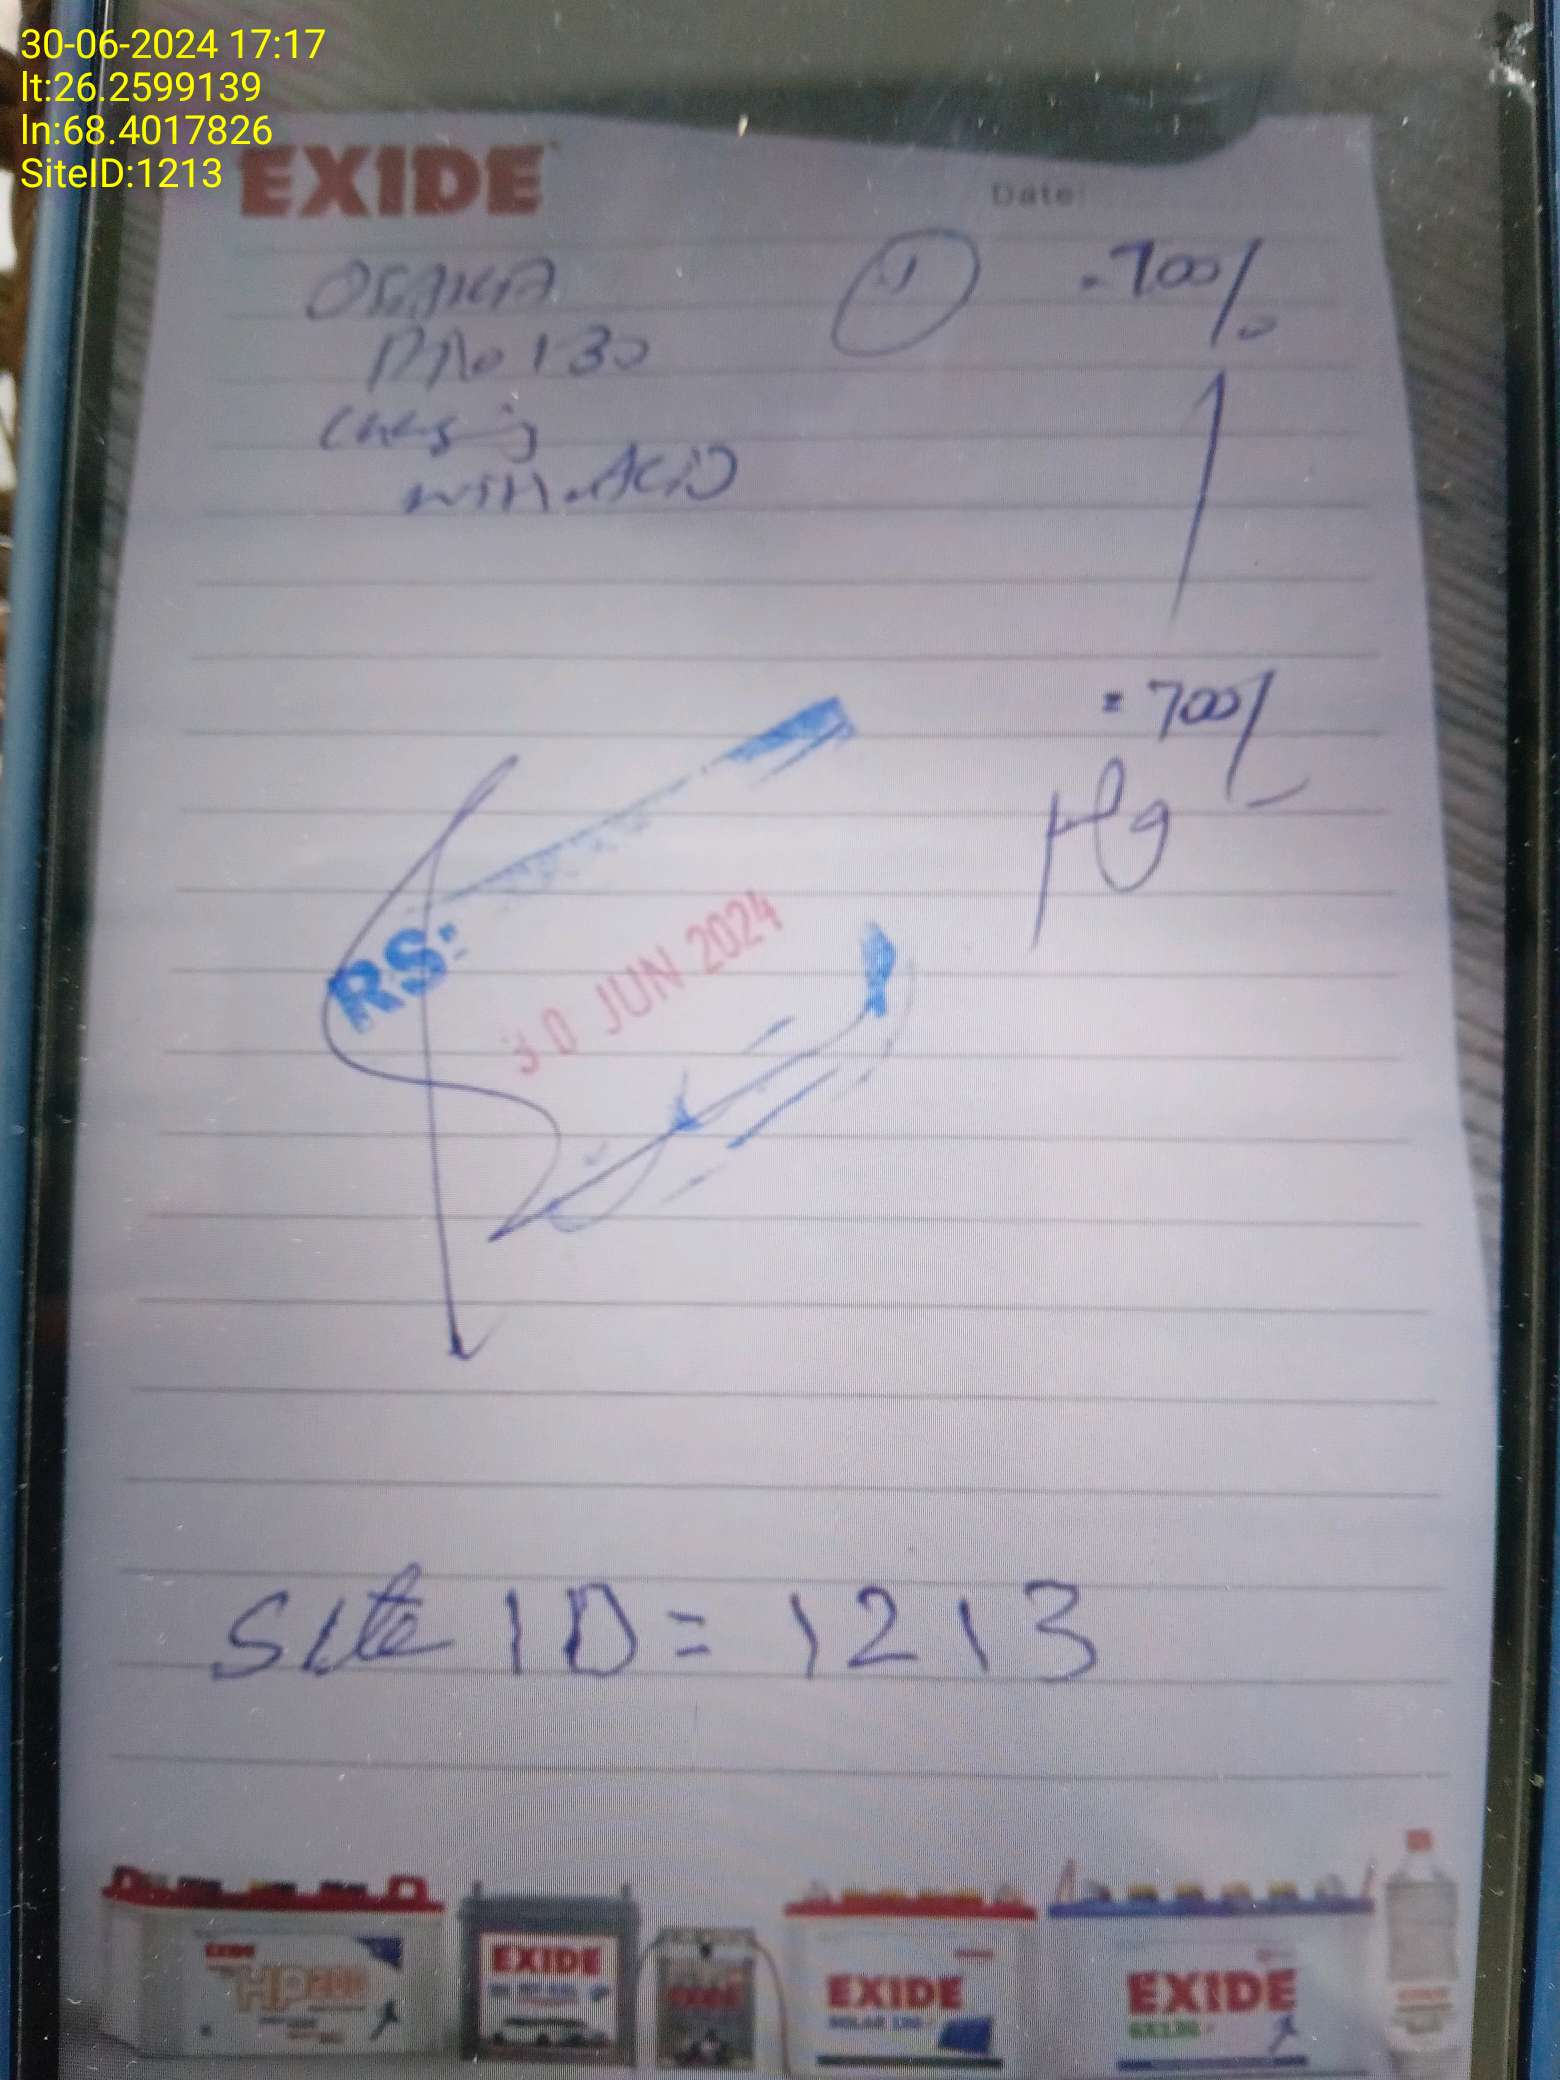 30-06-2024 17:17
lt:26.2599139
ln:68.4017826
SiteID:1213
EXIDE
Date:
OSAKA 1 = 700/
Pro 130
Charging
with Acid
= 700/
RS:
30 JUN 2024
Site ID = 1213
EXIDE
HP200
EXIDE
EXIDE
SOLAR
EXIDE